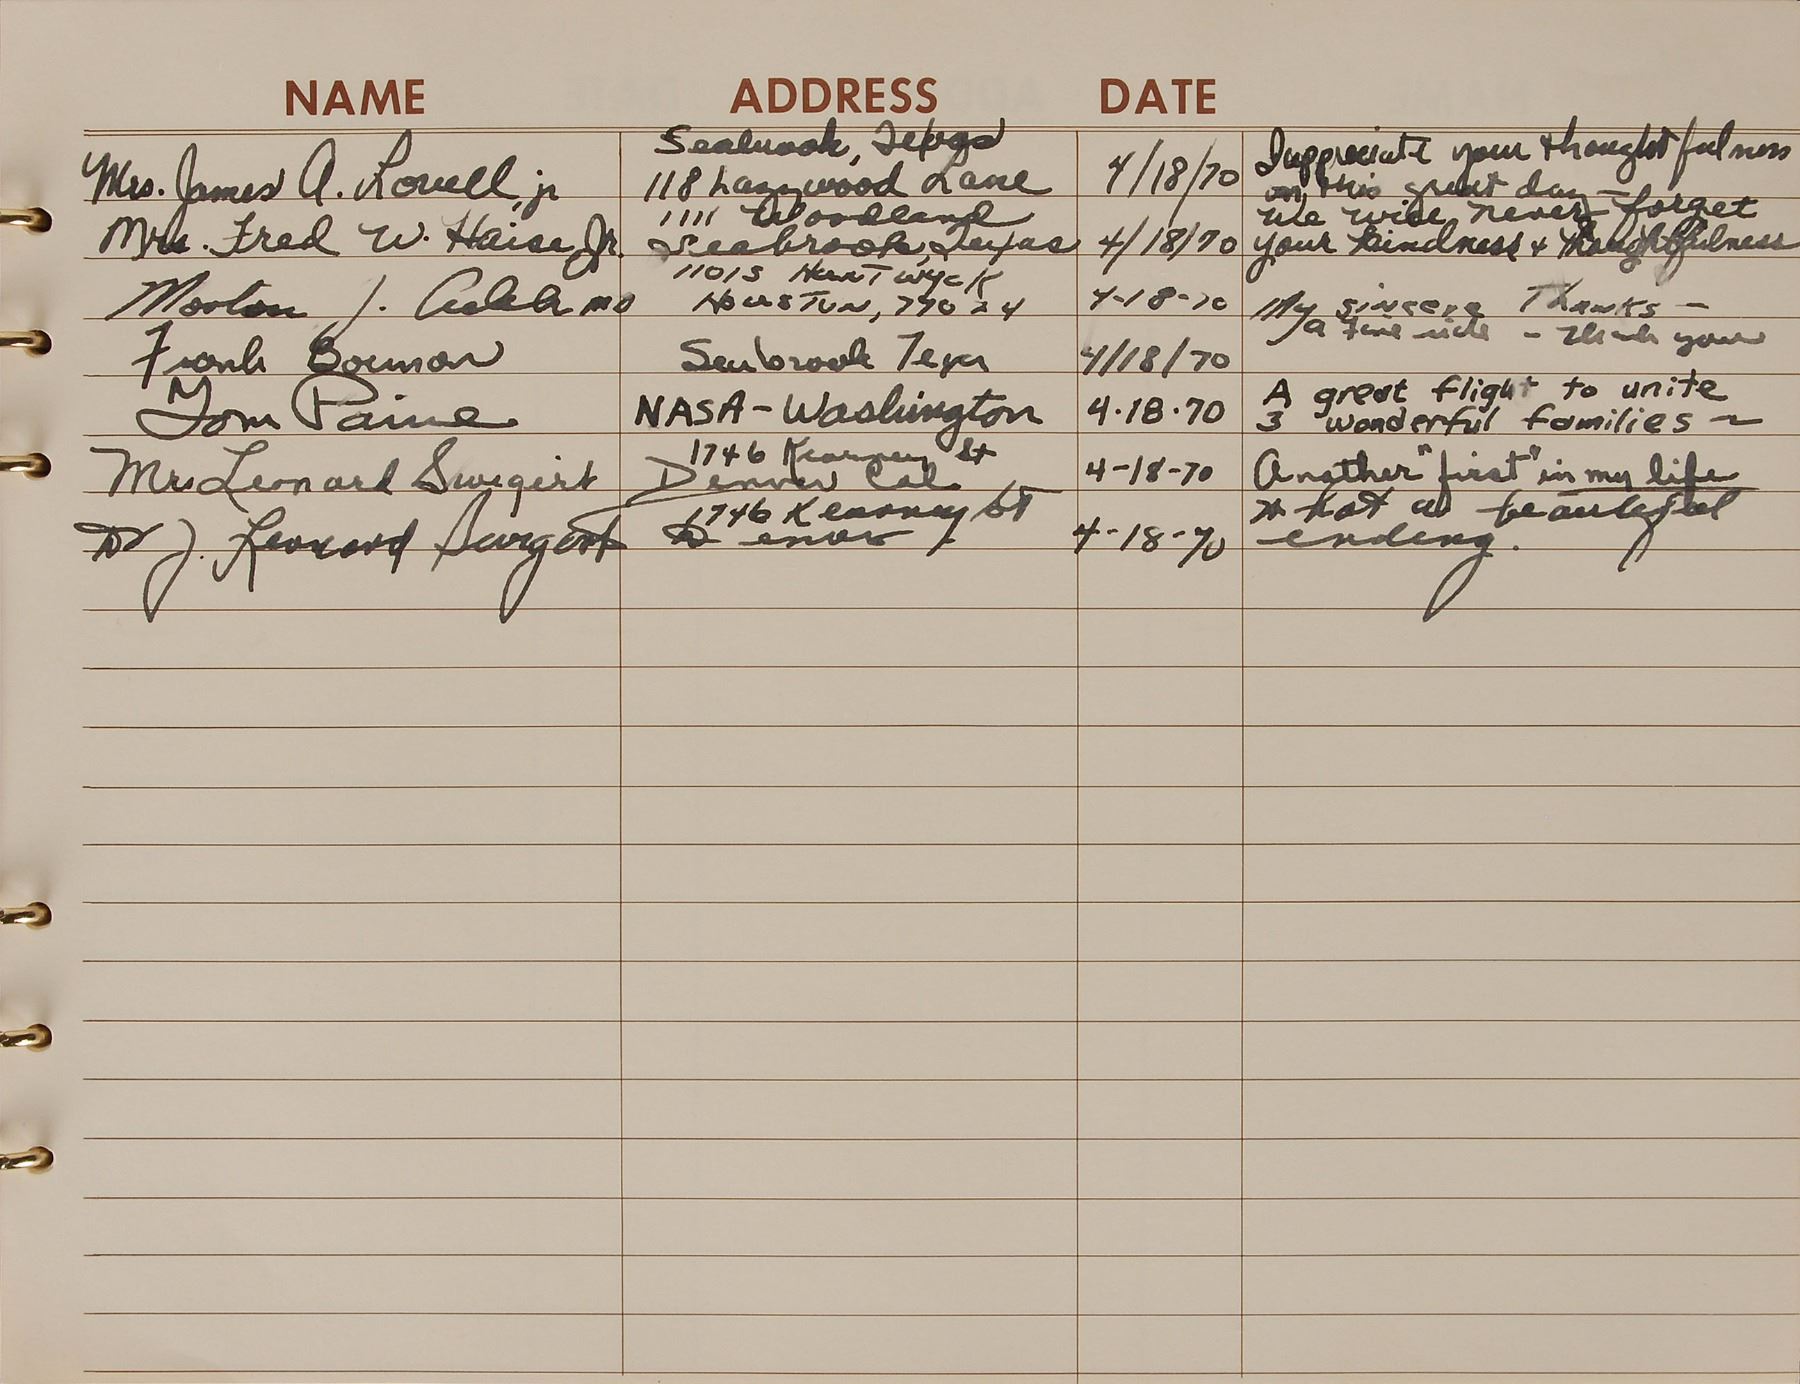 NAME ADDRESS DATE
Seabrook, Texas
Mrs. James A. Lovell, jr 118 Lazywood Lane 4/18/70 I appreciate your thoughtfulness
on this great day –
1111 Woodland We will never forget
Mrs. Fred W. Haise, Jr. Seabrook, Texas 4/18/70 your kindness & thoughtfulness
11015 HUNTWYCK
Morton J. MD HOUSTON, 77024 4-18-70 My sincere Thanks –
a fine ride – Thank you
Frank Borman Seabrook Texas 4/18/70
A great flight to unite
Tom Paine NASA – Washington 4.18.70 3 wonderful families ~
1746 Kearney St
Mrs Leonard Swigert Denver Col. 4-18-70 Another "first" in my life
1746 Kearney St What a beautiful
Dr J. Leonard Swigert Denver 4-18-70 ending.